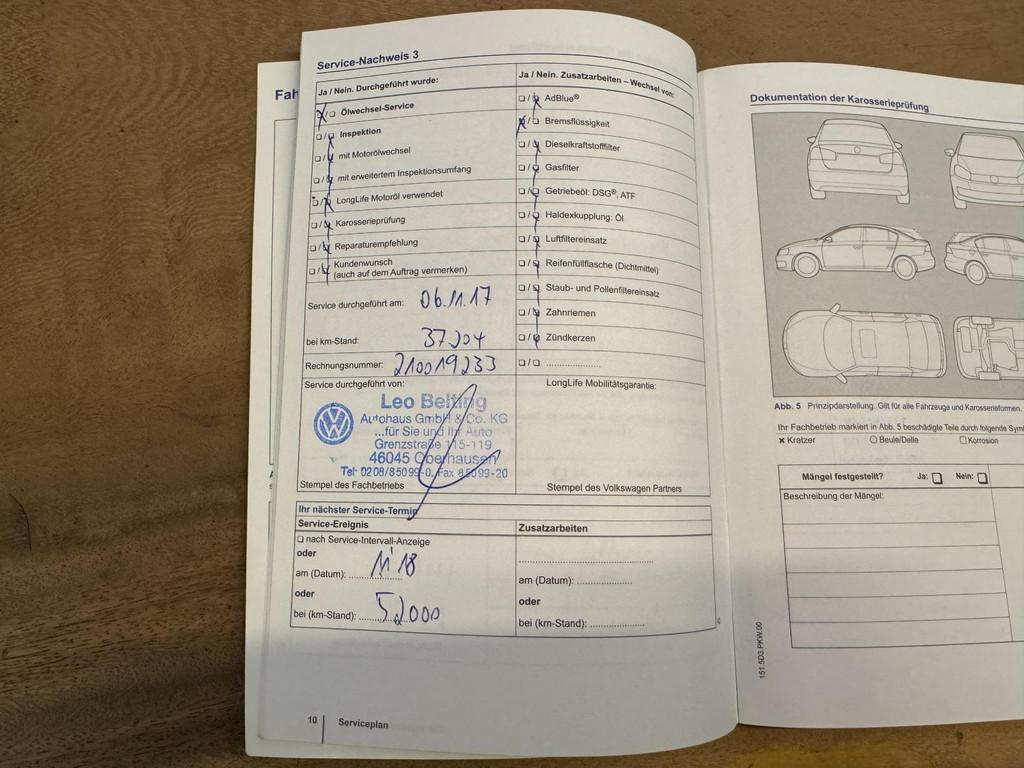 Fah
Service-Nachweis 3
Ja / Nein. Durchgeführt wurde:
☒/☐ Ölwechsel-Service
☐/☒ Inspektion
☐/☒ mit Motorölwechsel
☐/☒ mit erweitertem Inspektionsumfang
☐/☒ LongLife Motoröl verwendet
☐/☒ Karosserieprüfung
☐/☒ Reparaturempfehlung
☐/☒ Kundenwunsch
(auch auf dem Auftrag vermerken)
Service durchgeführt am: 06.11.17
bei km-Stand: 37204
Rechnungsnummer: 210019233
Service durchgeführt von:
Leo Belting
Autohaus GmbH & Co. KG
...für Sie und Ihr Auto
Grenzstraße 115-119
46045 Oberhausen
Tel: 0208/85099-0, Fax 85099-20
Stempel des Fachbetriebs
Ja / Nein. Zusatzarbeiten – Wechsel von:
☐/☒ AdBlue®
☒/☐ Bremsflüssigkeit
☐/☒ Dieselkraftstofffilter
☐/☒ Gasfilter
☐/☒ Getriebeöl: DSG®, ATF
☐/☒ Haldexkupplung: Öl
☐/☒ Luftfiltereinsatz
☐/☒ Reifenfüllflasche (Dichtmittel)
☐/☒ Staub- und Pollenfiltereinsatz
☐/☒ Zahnriemen
☐/☒ Zündkerzen
☐/☐ ....................
LongLife Mobilitätsgarantie:
Stempel des Volkswagen Partners
Ihr nächster Service-Termin
Service-Ereignis
☐ nach Service-Intervall-Anzeige
oder
am (Datum): 11/18
oder
bei (km-Stand): 52000
Zusatzarbeiten
am (Datum): ....................
oder
bei (km-Stand): ....................
10 Serviceplan
Dokumentation der Karosserieprüfung
Abb. 5 Prinzipdarstellung. Gilt für alle Fahrzeuge und Karosserieformen.
Ihr Fachbetrieb markiert in Abb. 5 beschädigte Teile durch folgende Sym
× Kratzer ○ Beule/Delle ☐ Korrosion
Mängel festgestellt? Ja: ☐ Nein: ☐
Beschreibung der Mängel:
151.5D3.PKW.00